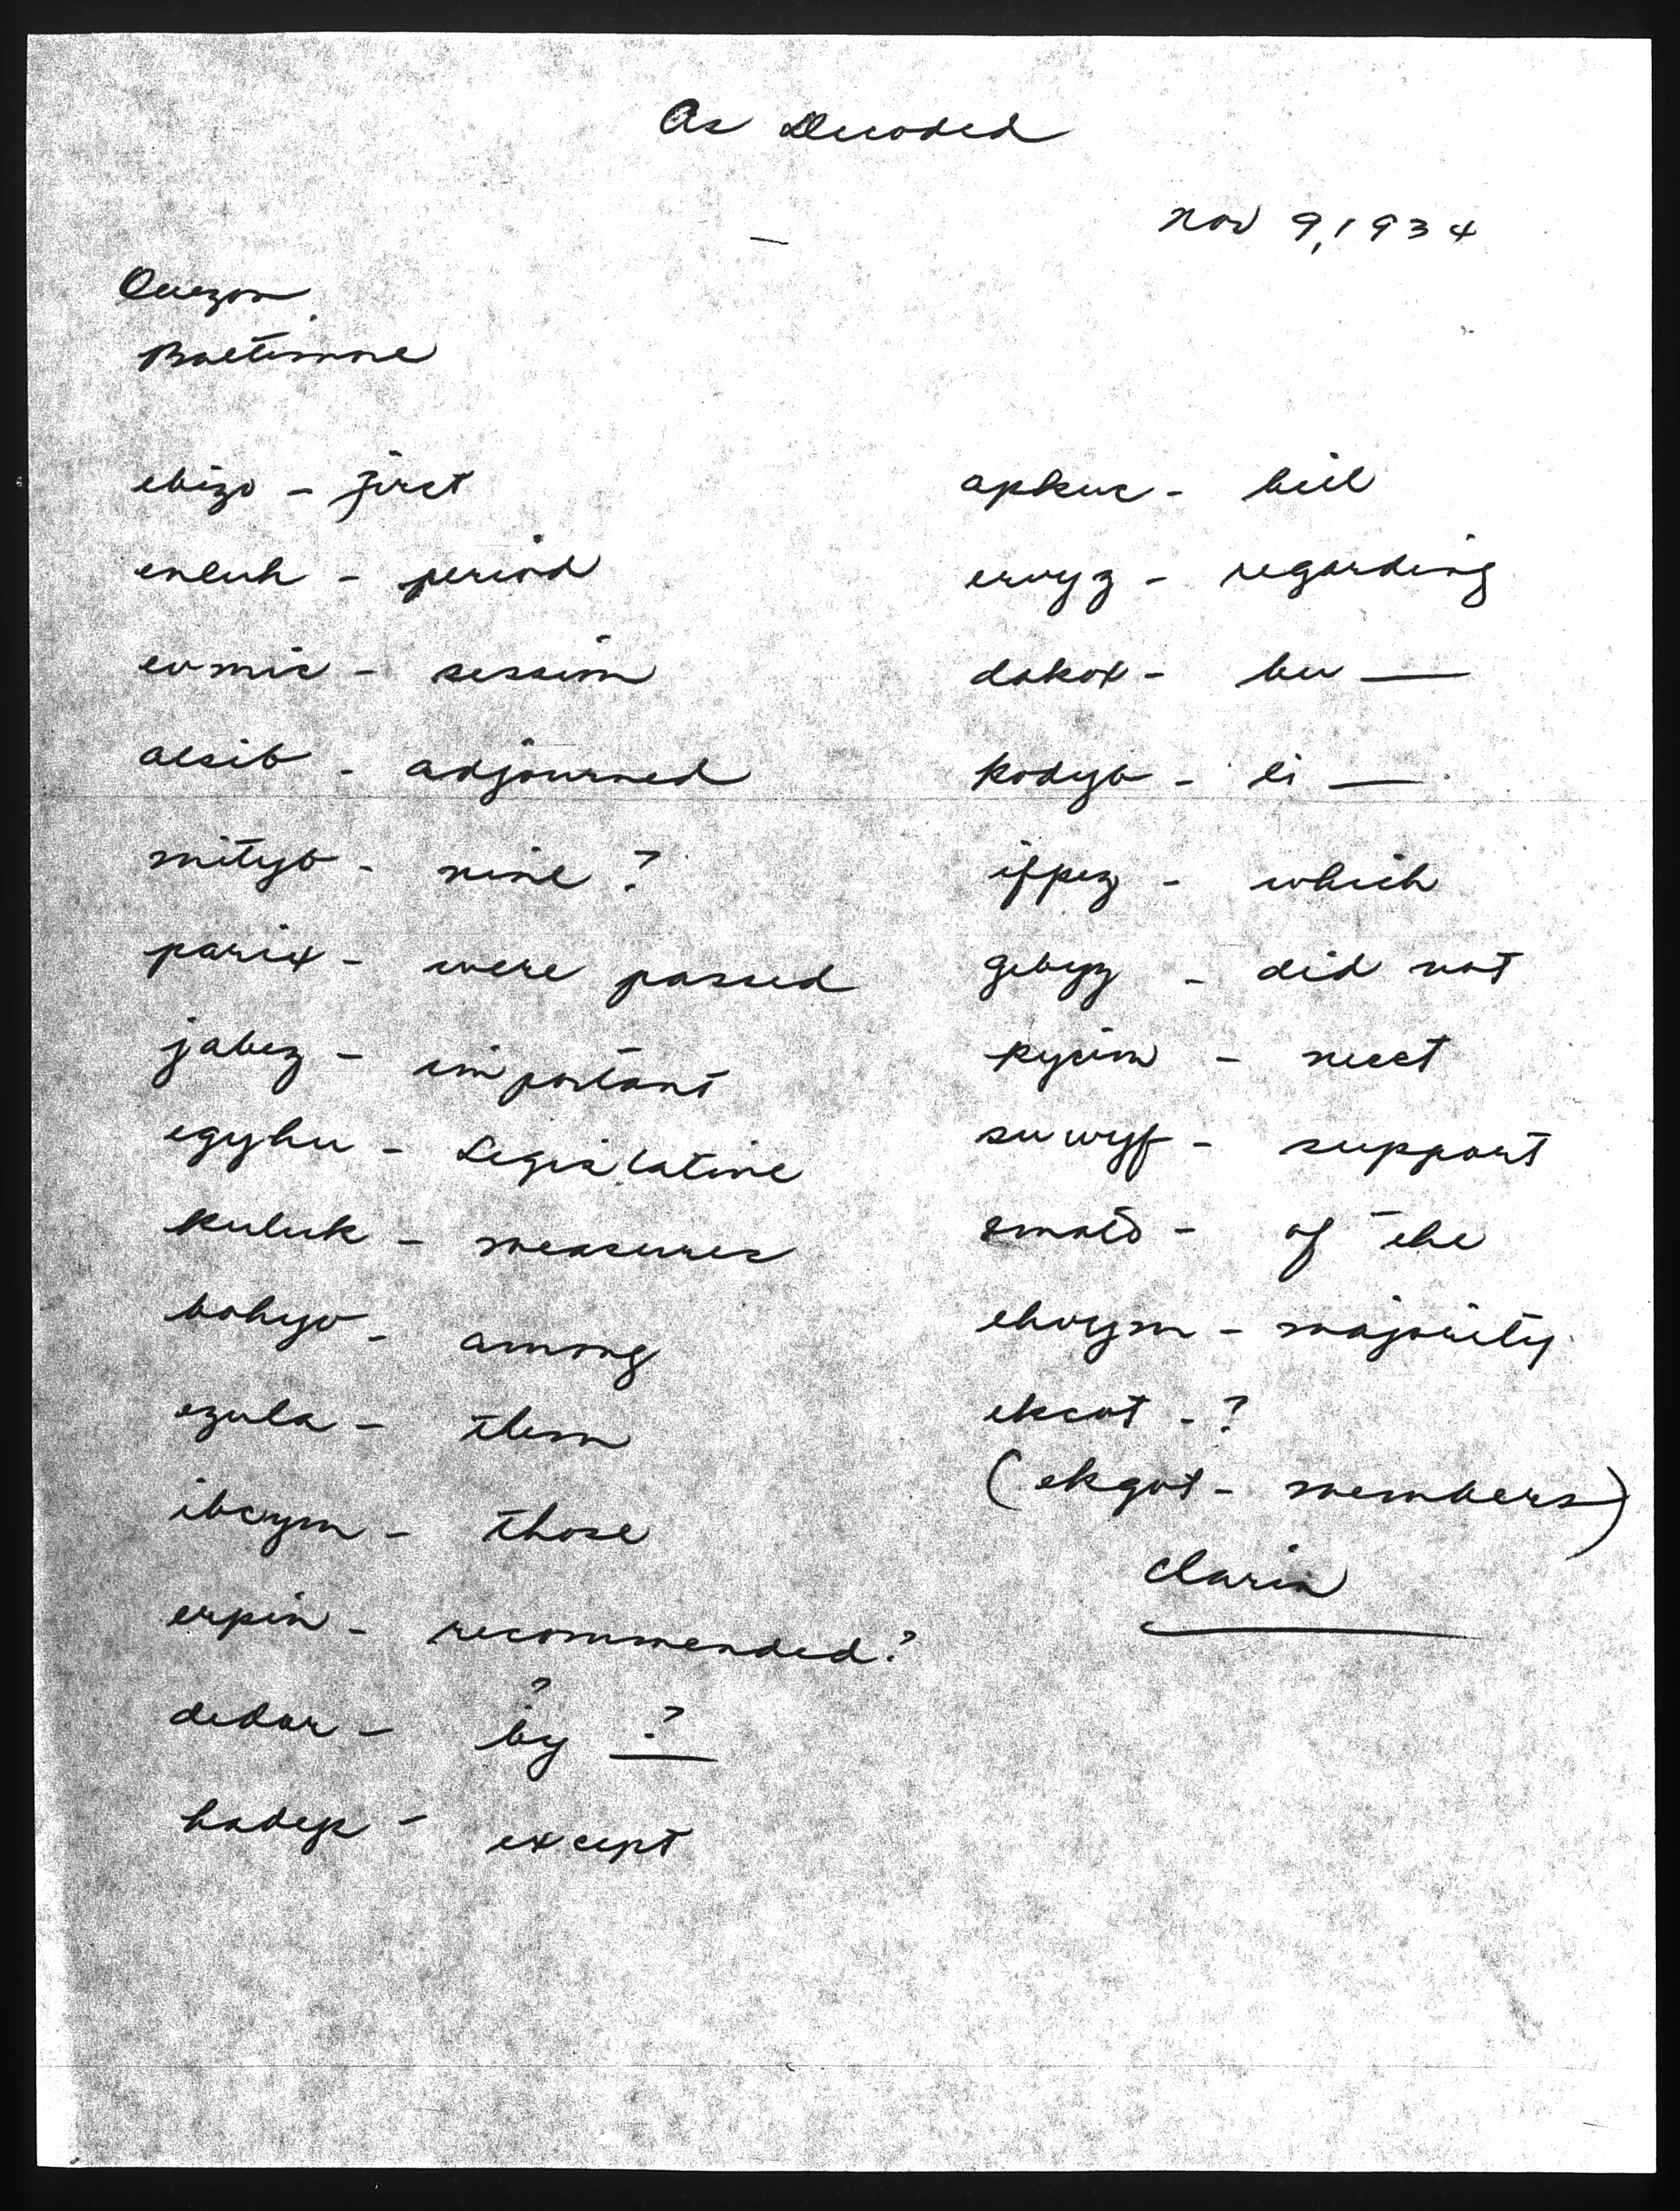 As Decoded
Nov 9, 1934
Quezon
Baltimore
ebizo - first
enluh - period
evmic - session
alsib - adjourned
mityb - nine ?
parix - were passed
jabez - important
egyhu - Legislative
kuluk - measures
bohyo - among
ezula - them
ibcym - those
erpin - recommended ?
?
dedar - by ?
hadep - except
apkuc - bill
ervyz - regarding
dakox - bu —
kodyb - li —
ifpez - which
gebyz - did not
kycim - meet
suwyf - support
of the
ehvym - majority
ekcot - ?
(ekgot - members)
Clarin